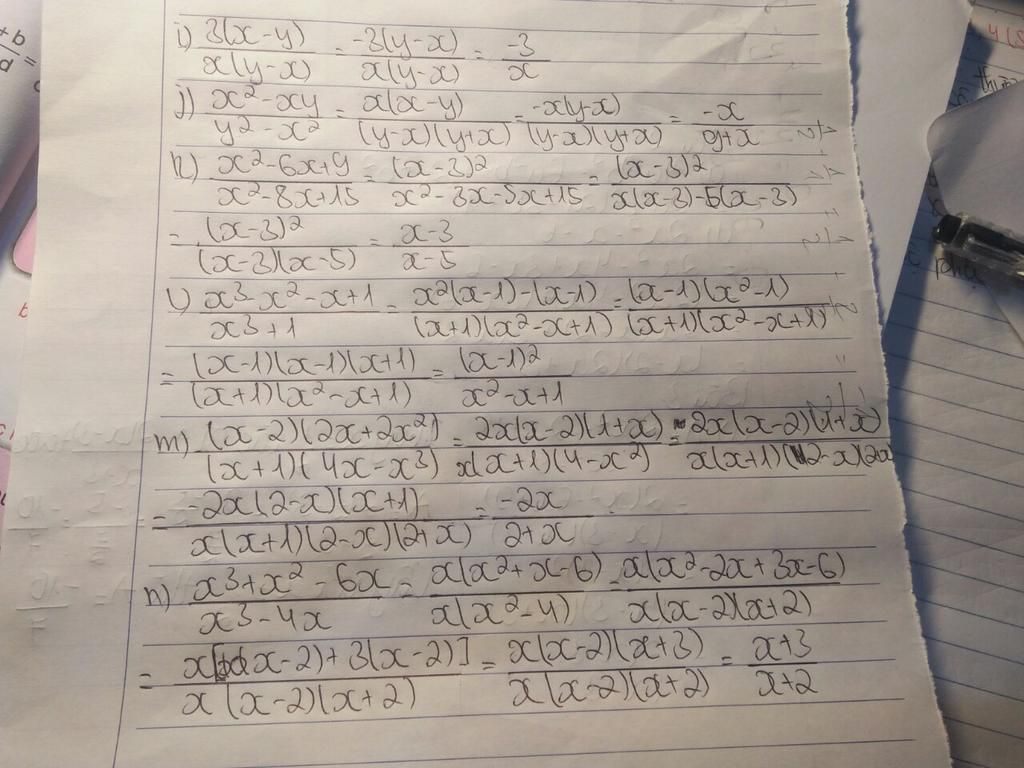 i) 3(x-y)/x(y-x) = -3(y-x)/x(y-x) = -3/x
j) x²-xy/y²-x² = x(x-y)/(y-x)(y+x) = -x(y-x)/(y-x)(y+x) = -x/y+x
k) x²-6x+9/x²-8x+15 = (x-3)²/x²-3x-5x+15 = (x-3)²/x(x-3)-5(x-3)
= (x-3)²/(x-3)(x-5) = x-3/x-5
l) x³-x²-x+1/x³+1 = x²(x-1)-(x-1)/(x+1)(x²-x+1) = (x-1)(x²-1)/(x+1)(x²-x+1)
= (x-1)(x-1)(x+1)/(x+1)(x²-x+1) = (x-1)²/x²-x+1
m) (x-2)(2x+2x²)/(x+1)(4x-x³) = 2x(x-2)(1+x)/x(x+1)(4-x²) = -2x(x-2)(1+x)/x(x+1)(2-x)(2x
= -2x(2-x)(x+1)/x(x+1)(2-x)(2+x) = -2x/2+x
n) x³+x²-6x/x³-4x = x(x²+x-6)/x(x²-4) = x(x²-2x+3x-6)/x(x-2)(x+2)
= x[x(x-2)+3(x-2)]/x(x-2)(x+2) = x(x-2)(x+3)/x(x-2)(x+2) = x+3/x+2
+b
d
=